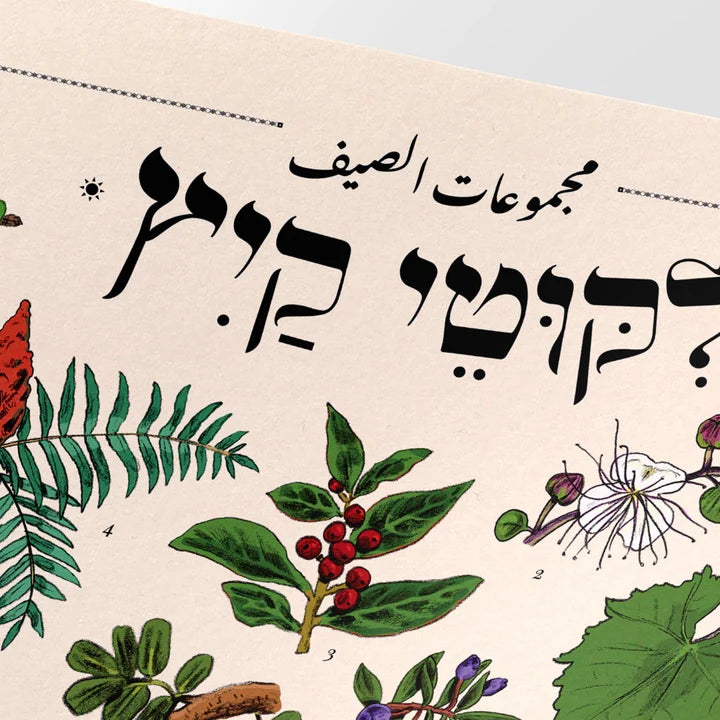 مجموعات الصيف
לִקּוּטֵי קַיִץ
4
2
3